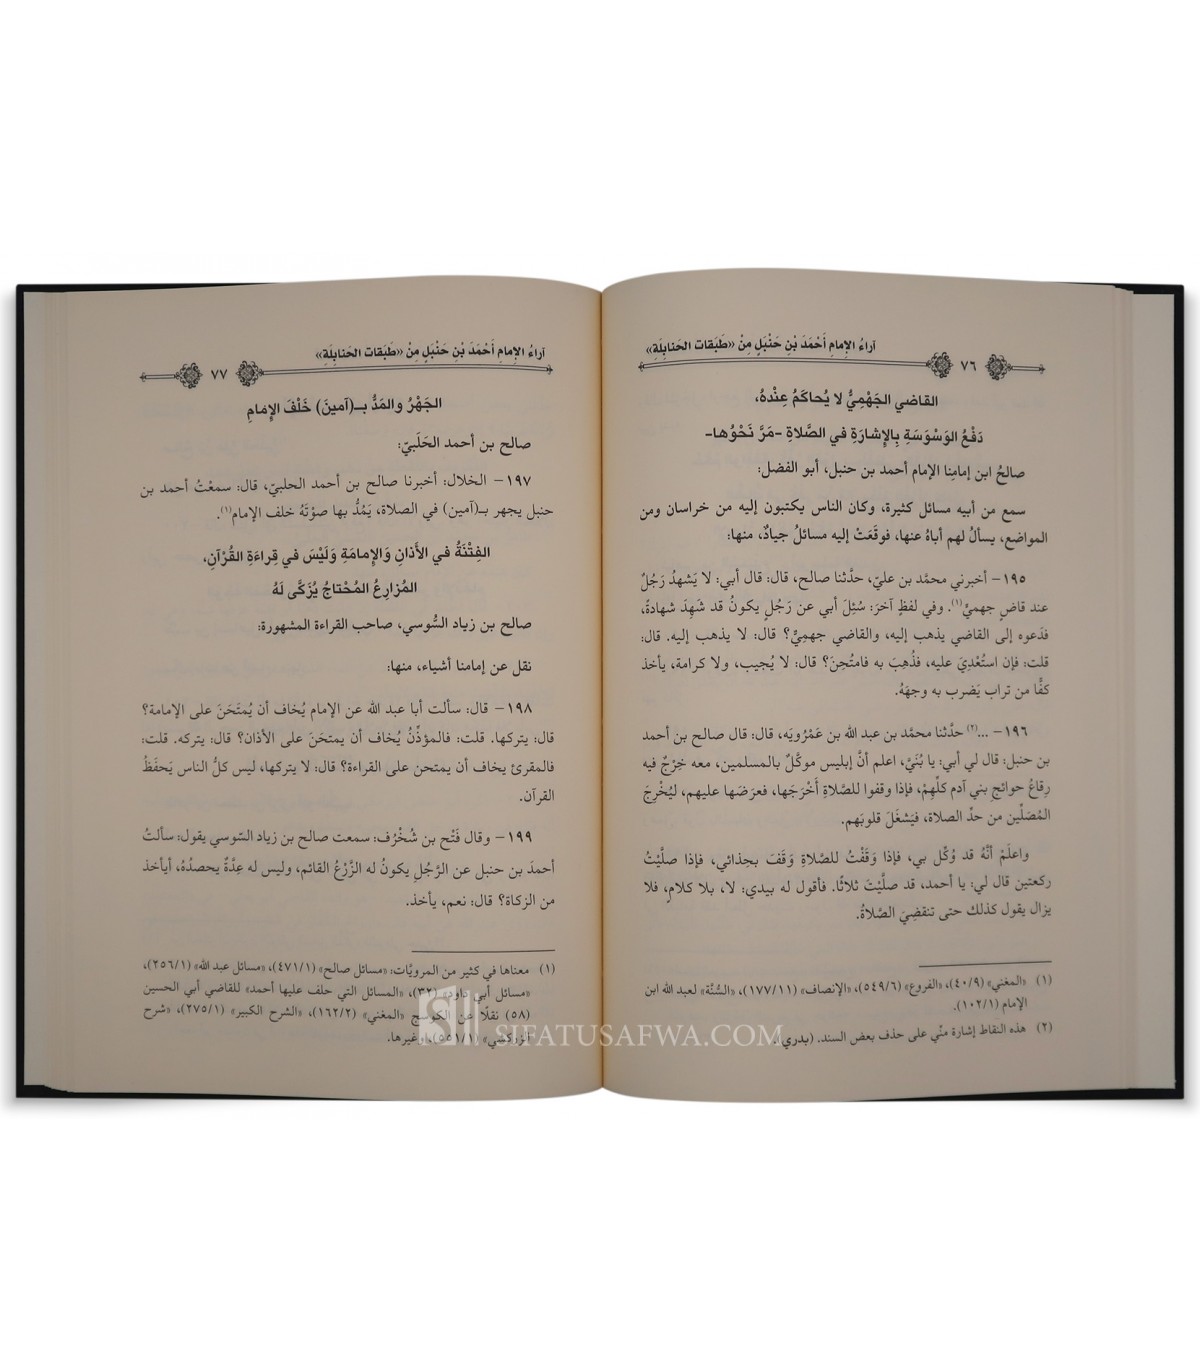 آراءُ الإمامِ أَحْمَدَ بْنِ حَنْبَلٍ مِنْ «طَبَقات الحَنابِلَةِ»
٧٦
القاضي الجَهْمِيُّ لا يُحاكَمُ عِنْدهُ،
دَفْعُ الوَسْوَسَةِ بِالإِشارَةِ في الصَّلاةِ -مَرَّ نَحْوُها-
صالحُ ابن إمامِنا الإمام أحمد بن حنبل، أبو الفضل:
سمع من أبيه مسائل كثيرة، وكان الناس يكتبون إليه من خراسان ومن
المواضع، يسألُ لهم أباهُ عنها، فوقَعَتْ إليه مسائلُ جيادٌ، منها:
١٩٥- أخبرني محمَّد بن عليّ، حدَّثنا صالح، قال: قال أبي: لا يَشهدُ رَجُلٌ
عند قاضٍ جهميٍّ(١). وفي لفظٍ آخرَ: سُئِلَ أبي عن رَجُلٍ يكونُ قد شَهِدَ شهادةً،
فدَعوه إلى القاضي يذهب إليه، والقاضي جهميٌّ؟ قال: لا يذهب إليه. قال:
قلت: فإن استُعْدِيَ عليه، فذُهِبَ به فامتُحِنَ؟ قال: لا يُجيب، ولا كرامة، يأخذ
كفًّا من تراب يَضرب به وجهَهُ.
١٩٦- ...(٢) حدَّثنا محمَّد بن عبد الله بن عَمْرُويَه، قال: قال صالح بن أحمد
بن حنبل: قال لي أبي: يا بُنَيَّ، اعلم أنَّ إبليس موكَّلٌ بالمسلمين، معه خِرْجٌ فيه
رِقاعُ حوائجِ بني آدم كلِّهِمْ، فإذا وقفوا للصَّلاةِ أَخْرَجَها، فعرَضَها عليهم، ليُخْرِجَ
المُصَلِّين من حدِّ الصلاة، فيَشغَلَ قلوبَهم.
واعلَمْ أنَّهُ قد وُكِّل بي، فإذا وَقَفْتُ للصَّلاةِ وَقَفَ بحِذائي، فإذا صلَّيْتُ
ركعتين قال لي: يا أحمد، قد صلَّيْتَ ثلاثًا. فأقول له بيدي: لا، بلا كلامٍ، فلا
يزال يقول كذلك حتى تنقضِيَ الصَّلاةُ.
(١) «المغني» (٤٠/٩)، «الفروع» (٥٤٩/٦)، «الإنصاف» (١٧٧/١١)، «السُّنَّة» لعبد الله ابن
الإمام (١٠٢/١).
(٢) هذه النقاط إشارة منّي على حذف بعض السند. (بدري).
آراءُ الإمامِ أَحْمَدَ بْنِ حَنْبَلٍ مِنْ «طَبَقات الحَنابِلَةِ»
٧٧
الجَهْرُ والمَدُّ بـ(آمين) خَلْفَ الإمَامِ
صالح بن أحمد الحَلَبيّ:
١٩٧- الخلال: أخبرنا صالح بن أحمد الحلبيّ، قال: سمعْتُ أحمد بن
حنبل يجهر بـ(آمين) في الصلاة، يَمُدُّ بها صوْتَهُ خلف الإمام(١).
الفِتْنَةُ في الأَذانِ وَالإمامَةِ وَلَيْسَ في قِراءَةِ القُرْآنِ،
المُزارِعُ المُحْتاجُ يُزَكَّى لَهُ
صالح بن زياد السُّوسي، صاحب القراءة المشهورة:
نقل عن إمامنا أشياء، منها:
١٩٨- قال: سألت أبا عبد الله عن الإمام يُخاف أن يُمتَحَنَ على الإمامة؟
قال: يتركها. قلت: فالمؤذِّنُ يُخاف أن يمتحَنَ على الأذان؟ قال: يتركه. قلت:
فالمقرئ يخاف أن يمتحن على القراءة؟ قال: لا يتركها، ليس كلُّ الناس يَحفَظُ
القرآن.
١٩٩- وقال فَتْح بن شُخْرُف: سمعت صالح بن زياد السّوسي يقول: سألتُ
أحمدَ بن حنبل عن الرَّجُلِ يكونُ له الزَّرْعُ القائم، وليس له عِدَّةٌ يحصدُهُ، أيأخذ
من الزكاة؟ قال: نعم، يأخذ.
(١) معناها في كثير من المرويَّات: «مسائل صالح» (٤٧١/١)، «مسائل عبد الله» (٢٥٦/١)،
«مسائل أبي داود» (٣٢)، «المسائل التي حلف عليها أحمد» للقاضي أبي الحسين
(٥٨) نقلًا عن الكوسج «المغني» (١٦٢/٢)، «الشرح الكبير» (٢٧٥/١)، «شرح
الزركشي» (٥٥١/١)، وغيرها.
SIFATUSAFWA.COM